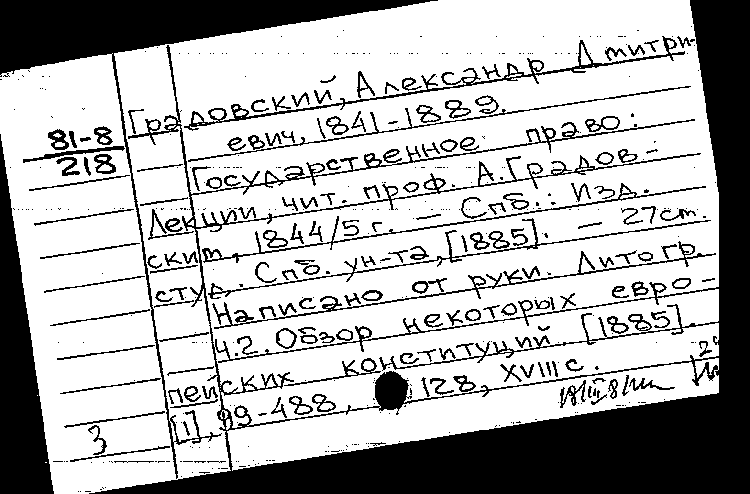 Градовский, Александр Дмитри-
евич, 1841-1889.
81-8
218
Государственное право:
Лекции, чит. проф. А. Градов-
ским, 1844/5 г. — Спб.: Изд.
студ. Спб. ун-та, [1885]. — 27 cm.
Написано от руки. Литогр.
Ч.2. Обзор некоторых евро-
пейских конституций. [1885].
[1], 99-488, 128, XVIII с.
3